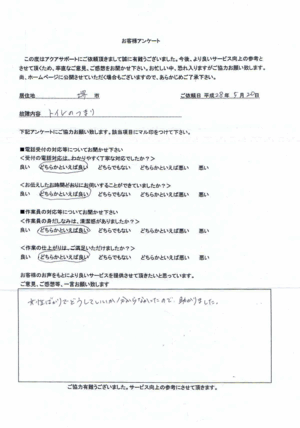 お客様アンケート
この度はアクアサポートにご依頼頂きまして誠に有難うございました。今後、より良いサービス向上の参考と
させて頂くため、率直なご意見、ご感想をお聞かせ下さい。お忙しい中、恐れ入りますがご協力お願い致します。
尚、ホームページに公開させていただく場合もございますので、あらかじめご了承下さい。
居住地 堺 市 ご依頼日 平成28年 5月 26日
故障内容 トイレのつまり
下記アンケートにご協力お願い致します。該当項目にマル印をつけて下さい。
■電話受付の対応等についてお聞かせ下さい
＜受付の電話対応は、わかりやすく丁寧な対応でしたか？＞
良い どちらかといえば良い どちらでもない どちらかといえば悪い 悪い
＜お伝えしたお時間どおりにお伺いすることができていましたか？＞
良い どちらかといえば良い どちらでもない どちらかといえば悪い 悪い
■作業員の対応等についてお聞かせ下さい
＜作業員の身だしなみは、清潔感がありましたか？＞
良い どちらかといえば良い どちらでもない どちらかといえば悪い 悪い
＜作業の仕上がりは、ご満足いただけましたか？＞
良い どちらかといえば良い どちらでもない どちらかといえば悪い 悪い
お客様のお声をもとにより良いサービスを提供させて頂きたいと思っています。
ご意見、ご感想等、一言お願い致します
女性ばかりでどうしていいか分からなかったので、助かりました。
ご協力有難うございました。サービス向上の参考にさせて頂きます。